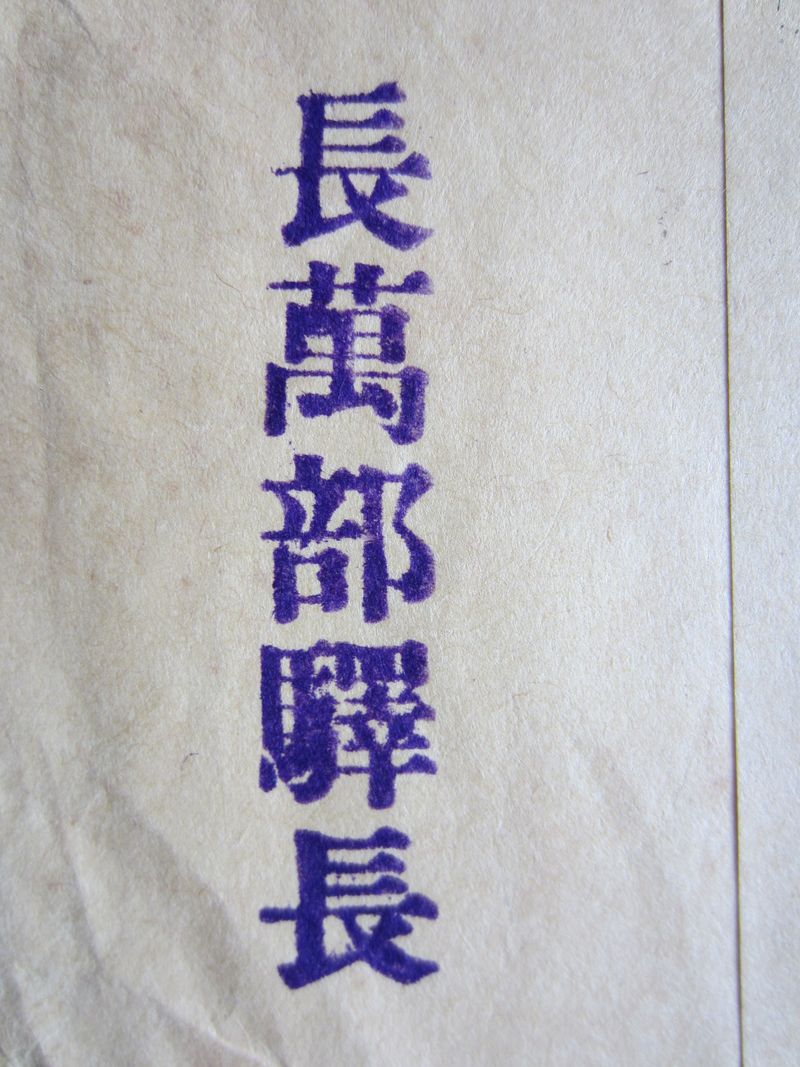 長萬部驛長